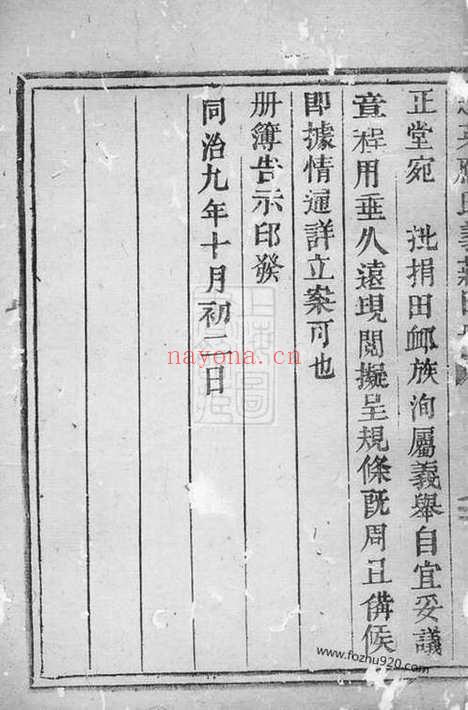 正堂宛 批捐田卹族洵屬義舉自宜妥議
章程用垂久遠現閱擬呈規條既周且備候
即據情通詳立案可也
册簿告示印發
同治九年十月初三日
nayona.cn
www.fozhu920.com